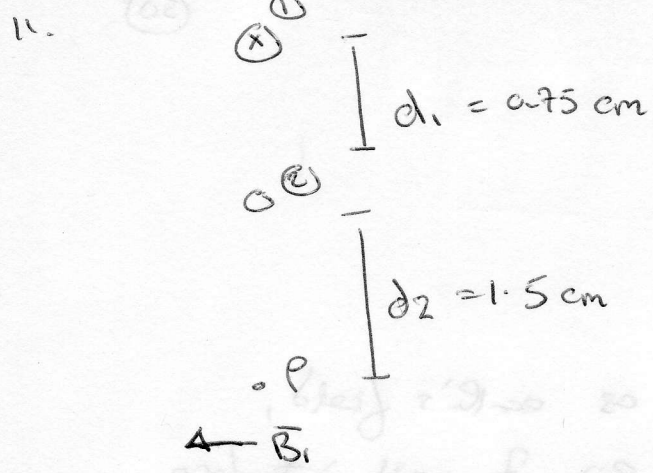 11.
①
ⓧ
d₁ = 0.75 cm
②
d₂ = 1.5 cm
. P
B̄₁